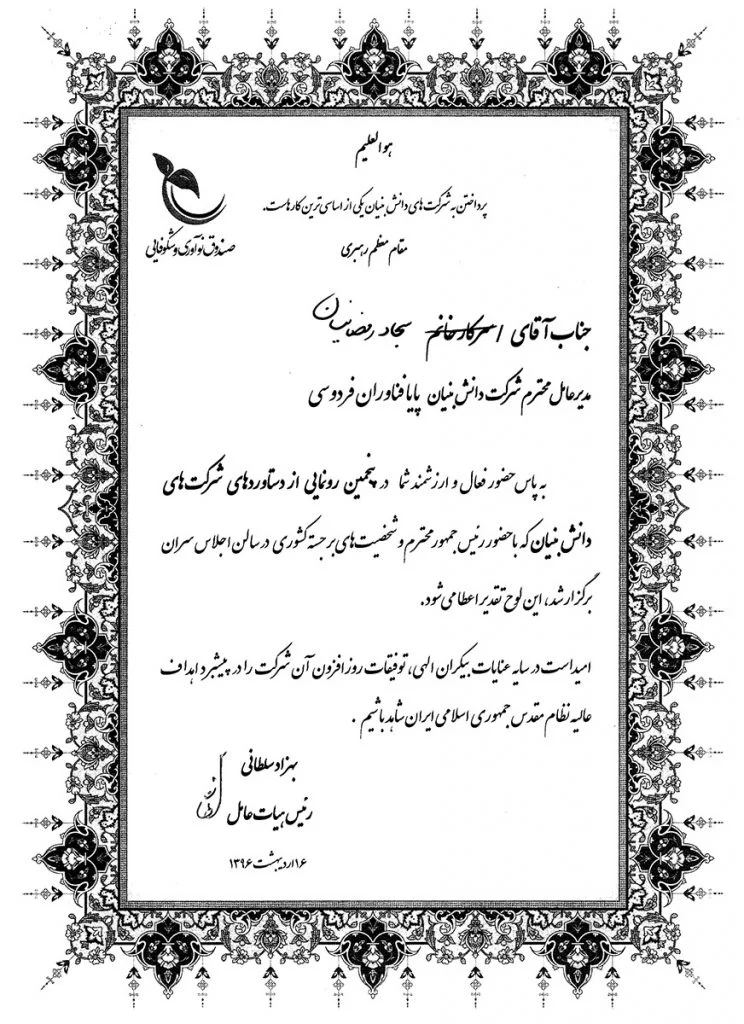 هوالعلیم
پرداختن به شرکت های دانش بنیان یکی از اساسی ترین کارهاست.
مقام معظم رهبری
صندوق نوآوری و شکوفایی
جناب آقای / سرکار خانم سجاد رمضانیان
مدیرعامل محترم شرکت دانش بنیان پایا فناوران فردوسی
به پاس حضور فعال و ارزشمند شما در پنجمین رونمایی از دستاوردهای شرکت های
دانش بنیان که با حضور رئیس جمهور محترم و شخصیت های برجسته کشوری در سالن اجلاس سران
برگزار شد، این لوح تقدیر اعطا می شود.
امید است در سایه عنایات بیکران الهی، توفیقات روزافزون آن شرکت را در پیشبرد اهداف
عالیه نظام مقدس جمهوری اسلامی ایران شاهد باشیم .
بهزاد سلطانی
رئیس هیات عامل
۱۶ اردیبهشت ۱۳۹۶